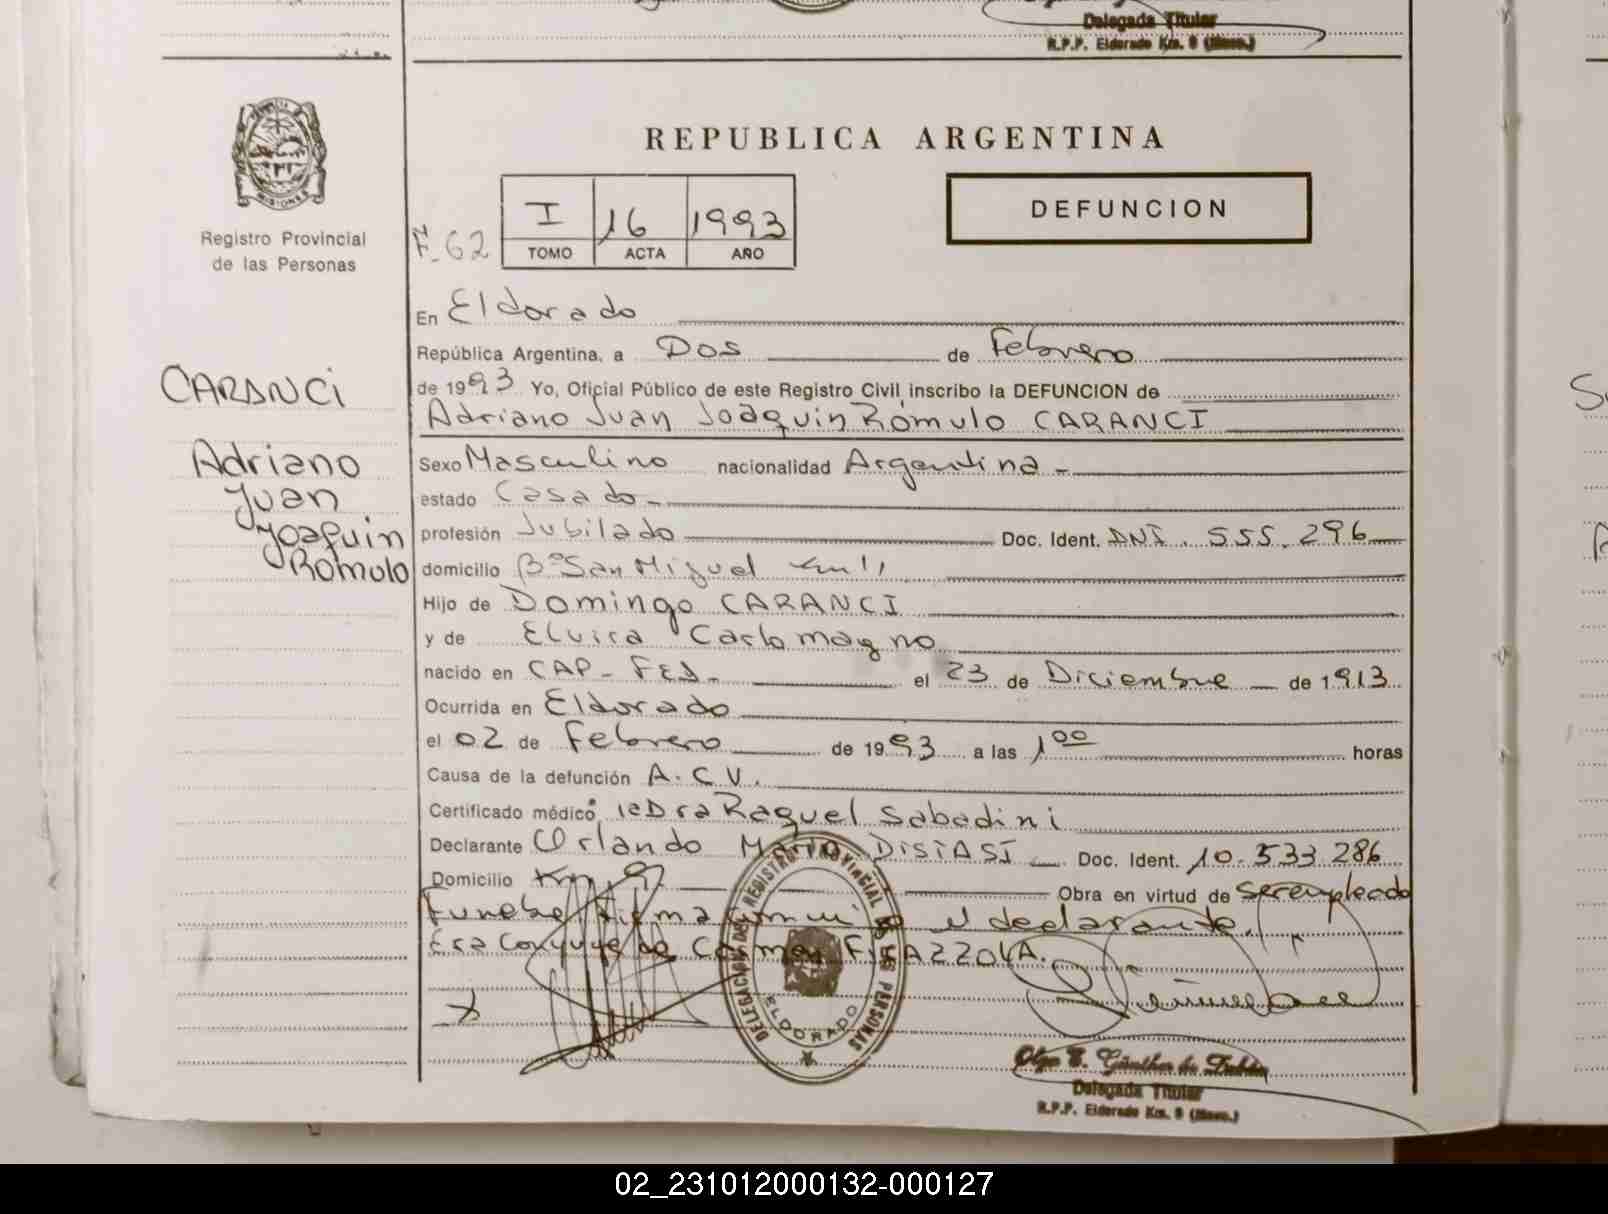 Delegada Titular
R.P.P. Eldorado Km. 9 (Mnes.)
MISIONES
Registro Provincial
de las Personas
REPUBLICA ARGENTINA
F-62
I 16 1993
TOMO ACTA AÑO
DEFUNCION
CARANCI
Adriano
Juan
Joaquin
Rómulo
En Eldorado
República Argentina, a Dos de Febrero
de 1993 Yo, Oficial Público de este Registro Civil inscribo la DEFUNCION de
Adriano Juan Joaquin Rómulo CARANCI
Sexo Masculino nacionalidad Argentina -
estado Casado -
profesión Jubilado Doc. Ident. DNI. 555.296
domicilio Bº San Miguel km 11
Hijo de Domingo CARANCI
y de Elvira Carlomagno
nacido en CAP-FED- el 23 de Diciembre de 1913
Ocurrida en Eldorado
el 02 de Febrero de 1993 a las 1 00 horas
Causa de la defunción A.C.V.
Certificado médico: la Dra Raquel Sabadini
Declarante Orlando Mario DISIASI Doc. Ident. 10.533.286
Domicilio Km 9 Obra en virtud de ser empleado
Funebre Firma el declarante.
Era Conyuge de
DELEGACION DEL REGISTRO PROVINCIAL DE LAS PERSONAS
ELDORADO
Olga E. Günther de
Delegada Titular
R.P.P. Eldorado Km. 9 (Mnes.)
02_231012000132-000127